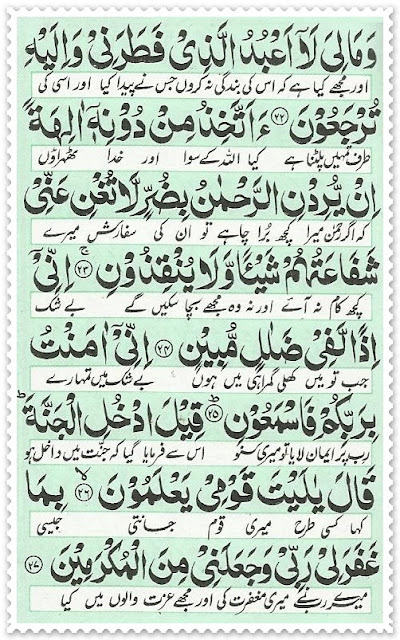 وَمَا لِیَ لَاۤ اَعْبُدُ الَّذِیْ فَطَرَنِیْ وَاِلَیْهِ
اور مجھے کیا ہے کہ اس کی بندگی نہ کروں جس نے پیدا کیا اور اسی کی
تُرْجَعُوْنَ ۲۲ ءَاَتَّخِذُ مِنْ دُوْنِهٖۤ اٰلِهَةً
طرف تمہیں پلٹنا ہے کیا اللہ کے سوا اور خدا ٹھہراؤں
اِنْ یُّرِدْنِ الرَّحْمٰنُ بِضُرٍّ لَّا تُغْنِ عَنِّیْ
کہ اگر رحمٰن میرا کچھ بُرا چاہے تو ان کی سفارش میرے
شَفَاعَتُهُمْ شَیْــٴًـا وَّلَا یُنْقِذُوْنِ ۲۳ اِنِّیْۤ
کچھ کام نہ آئے اور نہ وہ مجھے بچا سکیں گے بے شک
اِذًا لَّفِیْ ضَلٰلٍ مُّبِیْنٍ ۲۴ اِنِّیْۤ اٰمَنْتُ
جب تو میں کھلی گمراہی میں ہوں بے شک میں تمہارے
بِرَبِّكُمْ فَاسْمَعُوْنِ ۲۵ قِیْلَ ادْخُلِ الْجَنَّةَ
رب پر ایمان لایا تو میری سنو اس سے فرمایا گیا کہ جنّت میں داخل ہو
قَالَ یٰلَیْتَ قَوْمِیْ یَعْلَمُوْنَ ۲۶ بِمَا
کہا کسی طرح میری قوم جانتی جیسی
غَفَرَ لِیْ رَبِّیْ وَجَعَلَنِیْ مِنَ الْمُكْرَمِیْنَ ۲۷
میرے رب نے میری مغفرت کی اور مجھے عزت والوں میں کیا